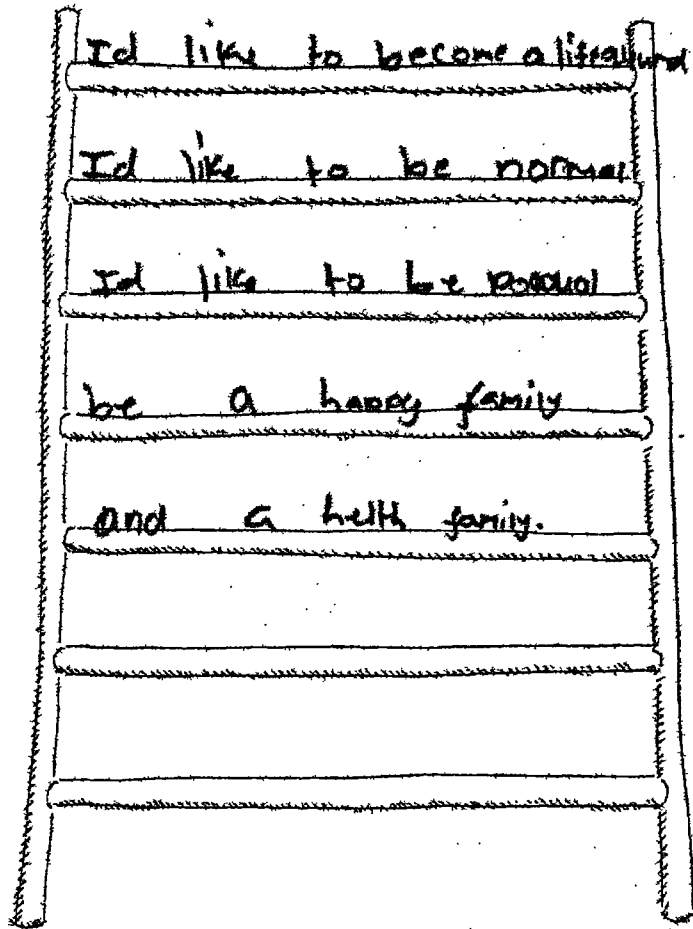 Id like to become a lifeguard
Id like to be normal
Id like to be
be a happy family
and a helth family.